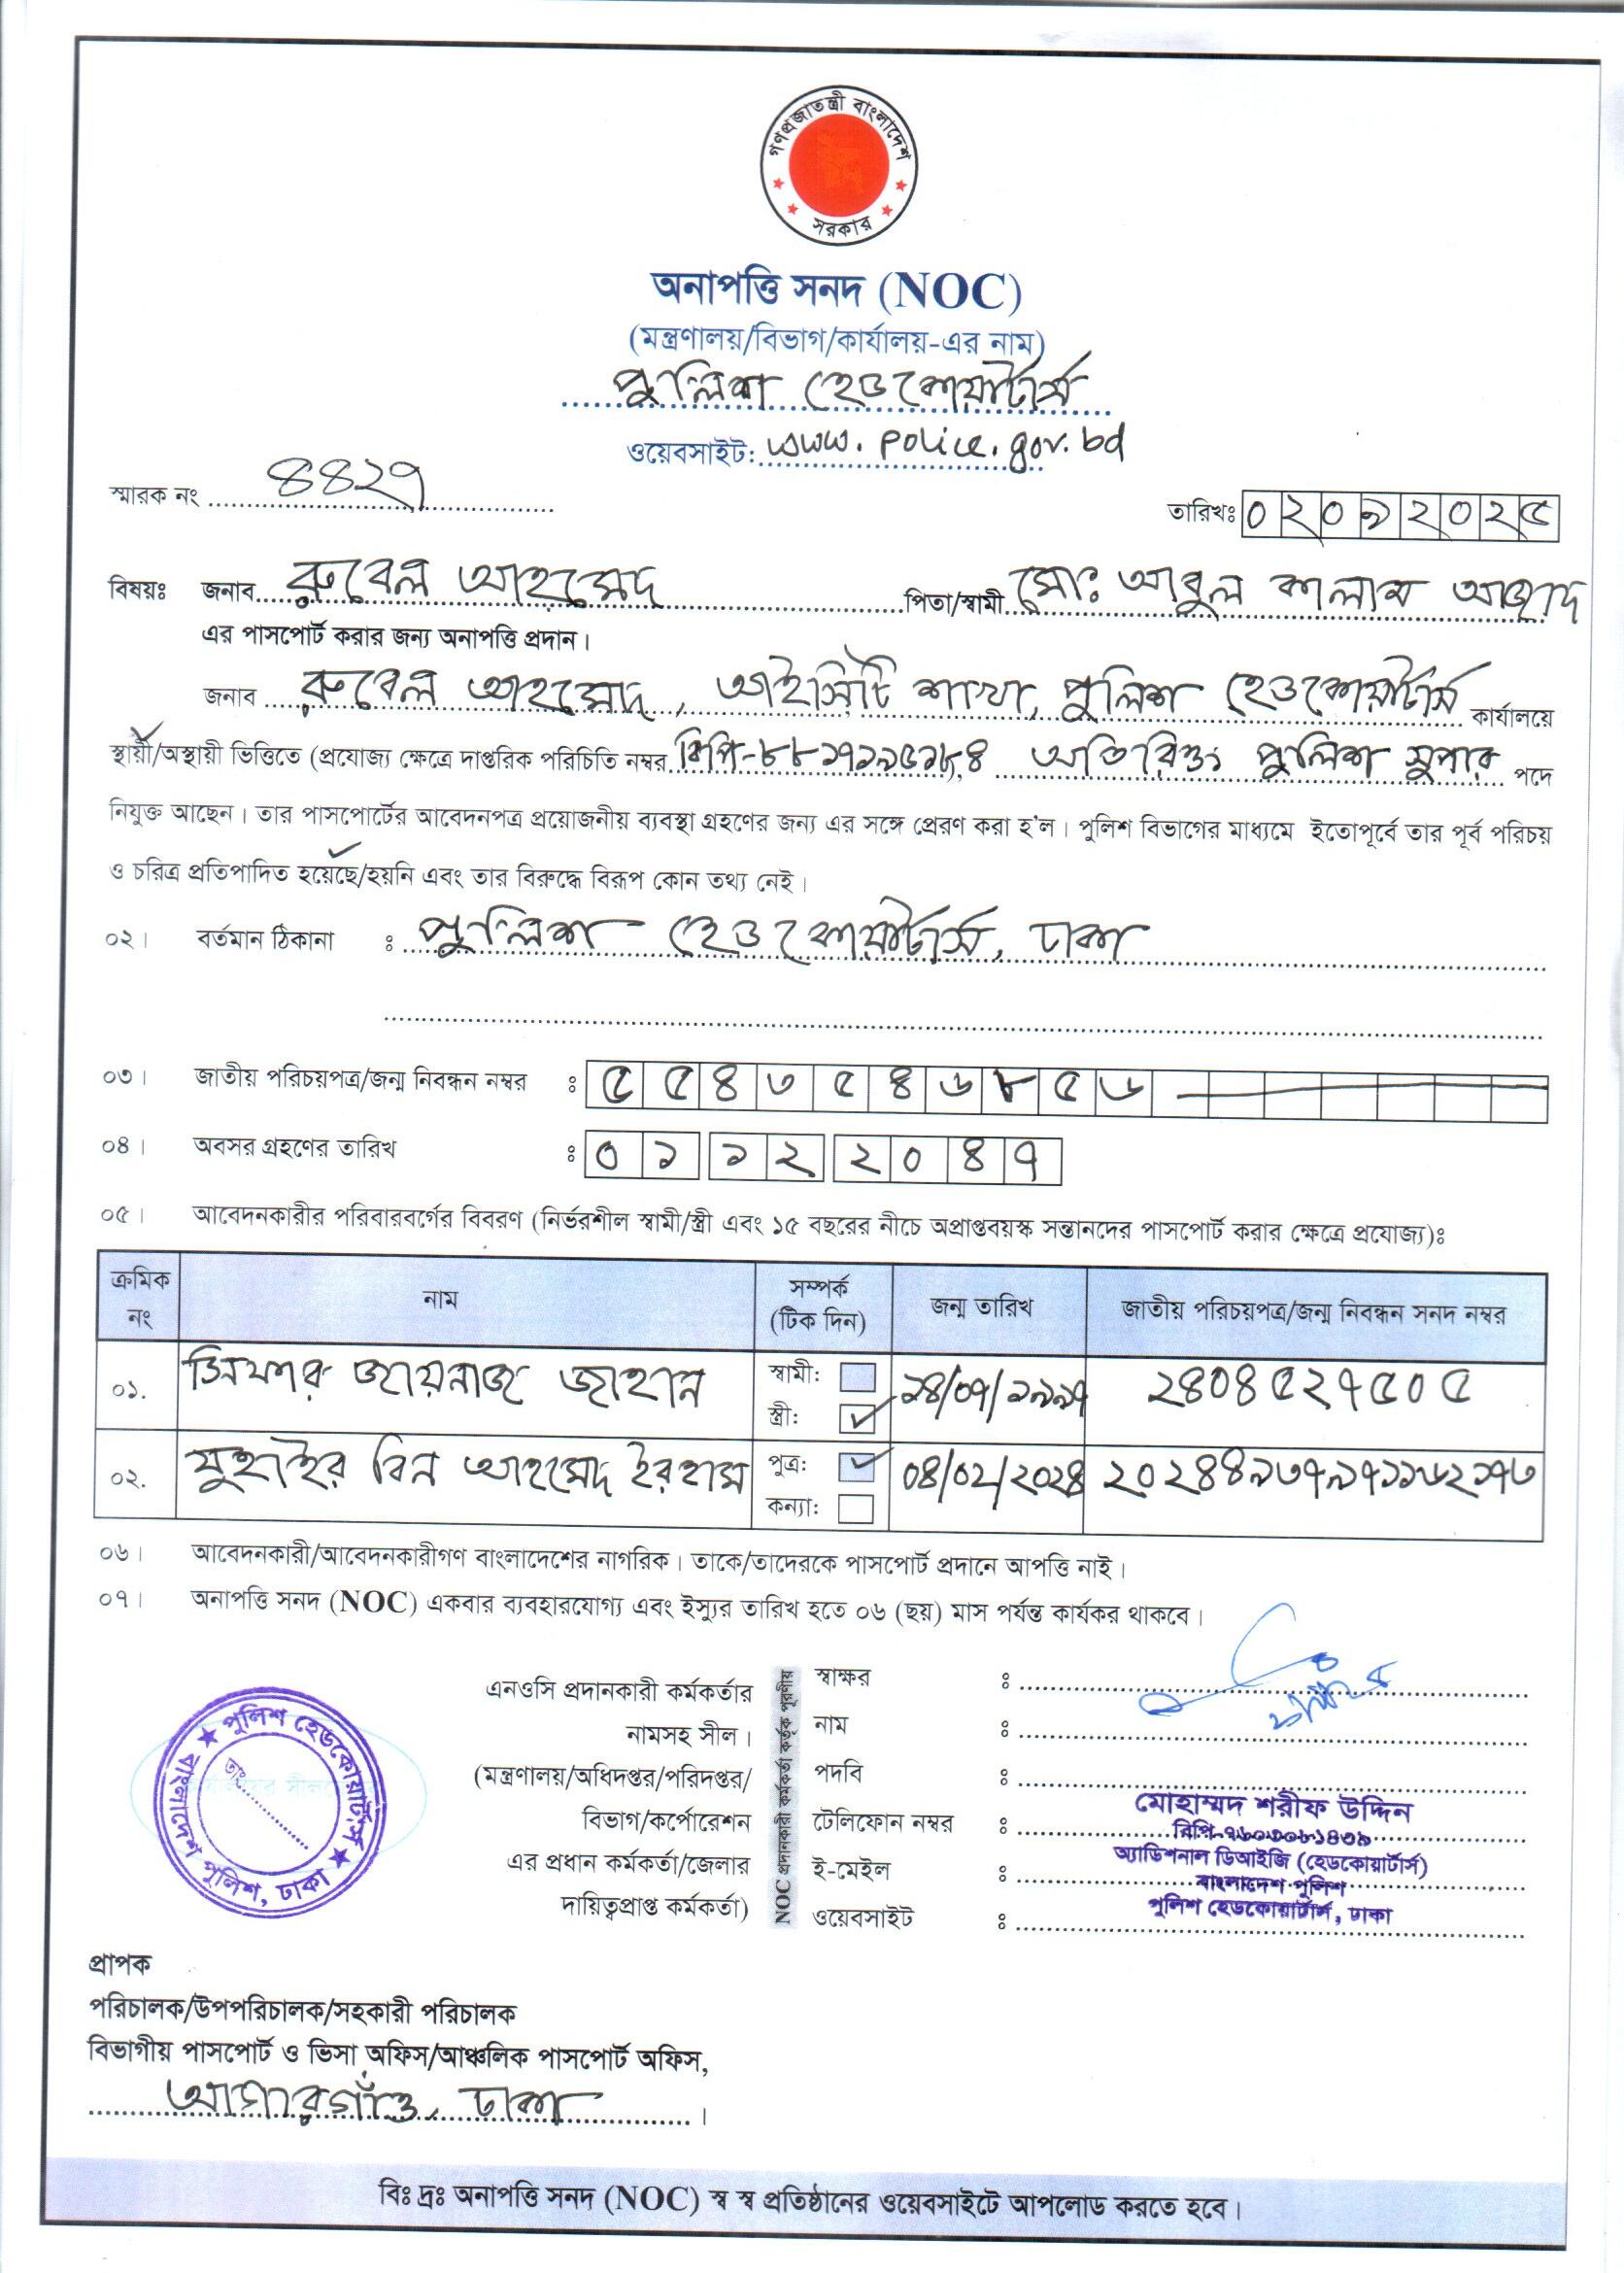 গণপ্রজাতন্ত্রী বাংলাদেশ
সরকার
অনাপত্তি সনদ (NOC)
(মন্ত্রণালয়/বিভাগ/কার্যালয়-এর নাম)
পুলিশ হেডকোয়ার্টার্স
ওয়েবসাইট: www.police.gov.bd
স্মারক নং ৪৪২৭ তারিখঃ ০২০৯২০২৫
বিষয়ঃ জনাব রুবেল আহমেদ পিতা/স্বামী মোঃ আবুল কালাম আজাদ
এর পাসপোর্ট করার জন্য অনাপত্তি প্রদান।
জনাব রুবেল আহমেদ, আইসিটি শাখা, পুলিশ হেডকোয়ার্টার্স কার্যালয়ে
স্থায়ী/অস্থায়ী ভিত্তিতে (প্রযোজ্য ক্ষেত্রে দাপ্তরিক পরিচিতি নম্বর অতিরিক্ত পুলিশ সুপার পদে
নিযুক্ত আছেন। তার পাসপোর্টের আবেদনপত্র প্রয়োজনীয় ব্যবস্থা গ্রহণের জন্য এর সঙ্গে প্রেরণ করা হ'ল। পুলিশ বিভাগের মাধ্যমে ইতোপূর্বে তার পূর্ব পরিচয়
ও চরিত্র প্রতিপাদিত হয়েছে/হয়নি এবং তার বিরুদ্ধে বিরূপ কোন তথ্য নেই।
০২। বর্তমান ঠিকানা ঃ পুলিশ হেডকোয়ার্টার্স, ঢাকা
০৩। জাতীয় পরিচয়পত্র/জন্ম নিবন্ধন নম্বর ঃ ৫৫৪৩৫৪৬৮৫৬
০৪। অবসর গ্রহণের তারিখ ঃ ০১১২২০৪৭
০৫। আবেদনকারীর পরিবারবর্গের বিবরণ (নির্ভরশীল স্বামী/স্ত্রী এবং ১৫ বছরের নীচে অপ্রাপ্তবয়স্ক সন্তানদের পাসপোর্ট করার ক্ষেত্রে প্রযোজ্য)ঃ
ক্রমিক নং নাম সম্পর্ক (টিক দিন) জন্ম তারিখ জাতীয় পরিচয়পত্র/জন্ম নিবন্ধন সনদ নম্বর
০১. জায়নাজ জাহান স্বামী: স্ত্রী: ১৪/০৭/১৯৯৭ ২৪০৪৫২৭৫০৫
০২. যুহাইর বিন আহমেদ ইরহাম পুত্র: কন্যা: ০৪/০২/২০২৪
০৬। আবেদনকারী/আবেদনকারীগণ বাংলাদেশের নাগরিক। তাকে/তাদেরকে পাসপোর্ট প্রদানে আপত্তি নাই।
০৭। অনাপত্তি সনদ (NOC) একবার ব্যবহারযোগ্য এবং ইস্যুর তারিখ হতে ০৬ (ছয়) মাস পর্যন্ত কার্যকর থাকবে।
পুলিশ হেডকোয়ার্টার্স
বাংলাদেশ পুলিশ, ঢাকা
তাং
এনওসি প্রদানকারী কর্মকর্তার
নামসহ সীল।
(মন্ত্রণালয়/অধিদপ্তর/পরিদপ্তর/
বিভাগ/কর্পোরেশন
এর প্রধান কর্মকর্তা/জেলার
দায়িত্বপ্রাপ্ত কর্মকর্তা)
NOC প্রদানকারী কর্মকর্তা কর্তৃক পূরণীয়
স্বাক্ষর ঃ
নাম ঃ
পদবি ঃ
টেলিফোন নম্বর ঃ
ই-মেইল ঃ
ওয়েবসাইট ঃ
মোহাম্মদ শরীফ উদ্দিন
অ্যাডিশনাল ডিআইজি (হেডকোয়ার্টার্স)
বাংলাদেশ পুলিশ
পুলিশ হেডকোয়ার্টার্স, ঢাকা
প্রাপক
পরিচালক/উপপরিচালক/সহকারী পরিচালক
বিভাগীয় পাসপোর্ট ও ভিসা অফিস/আঞ্চলিক পাসপোর্ট অফিস,
আগারগাঁও, ঢাকা।
বিঃ দ্রঃ অনাপত্তি সনদ (NOC) স্ব স্ব প্রতিষ্ঠানের ওয়েবসাইটে আপলোড করতে হবে।